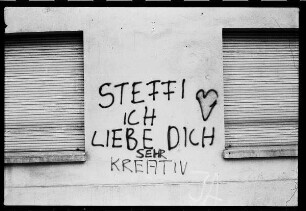 STEFFI
ICH
LIEBE DICH
SEHR
KREATIV